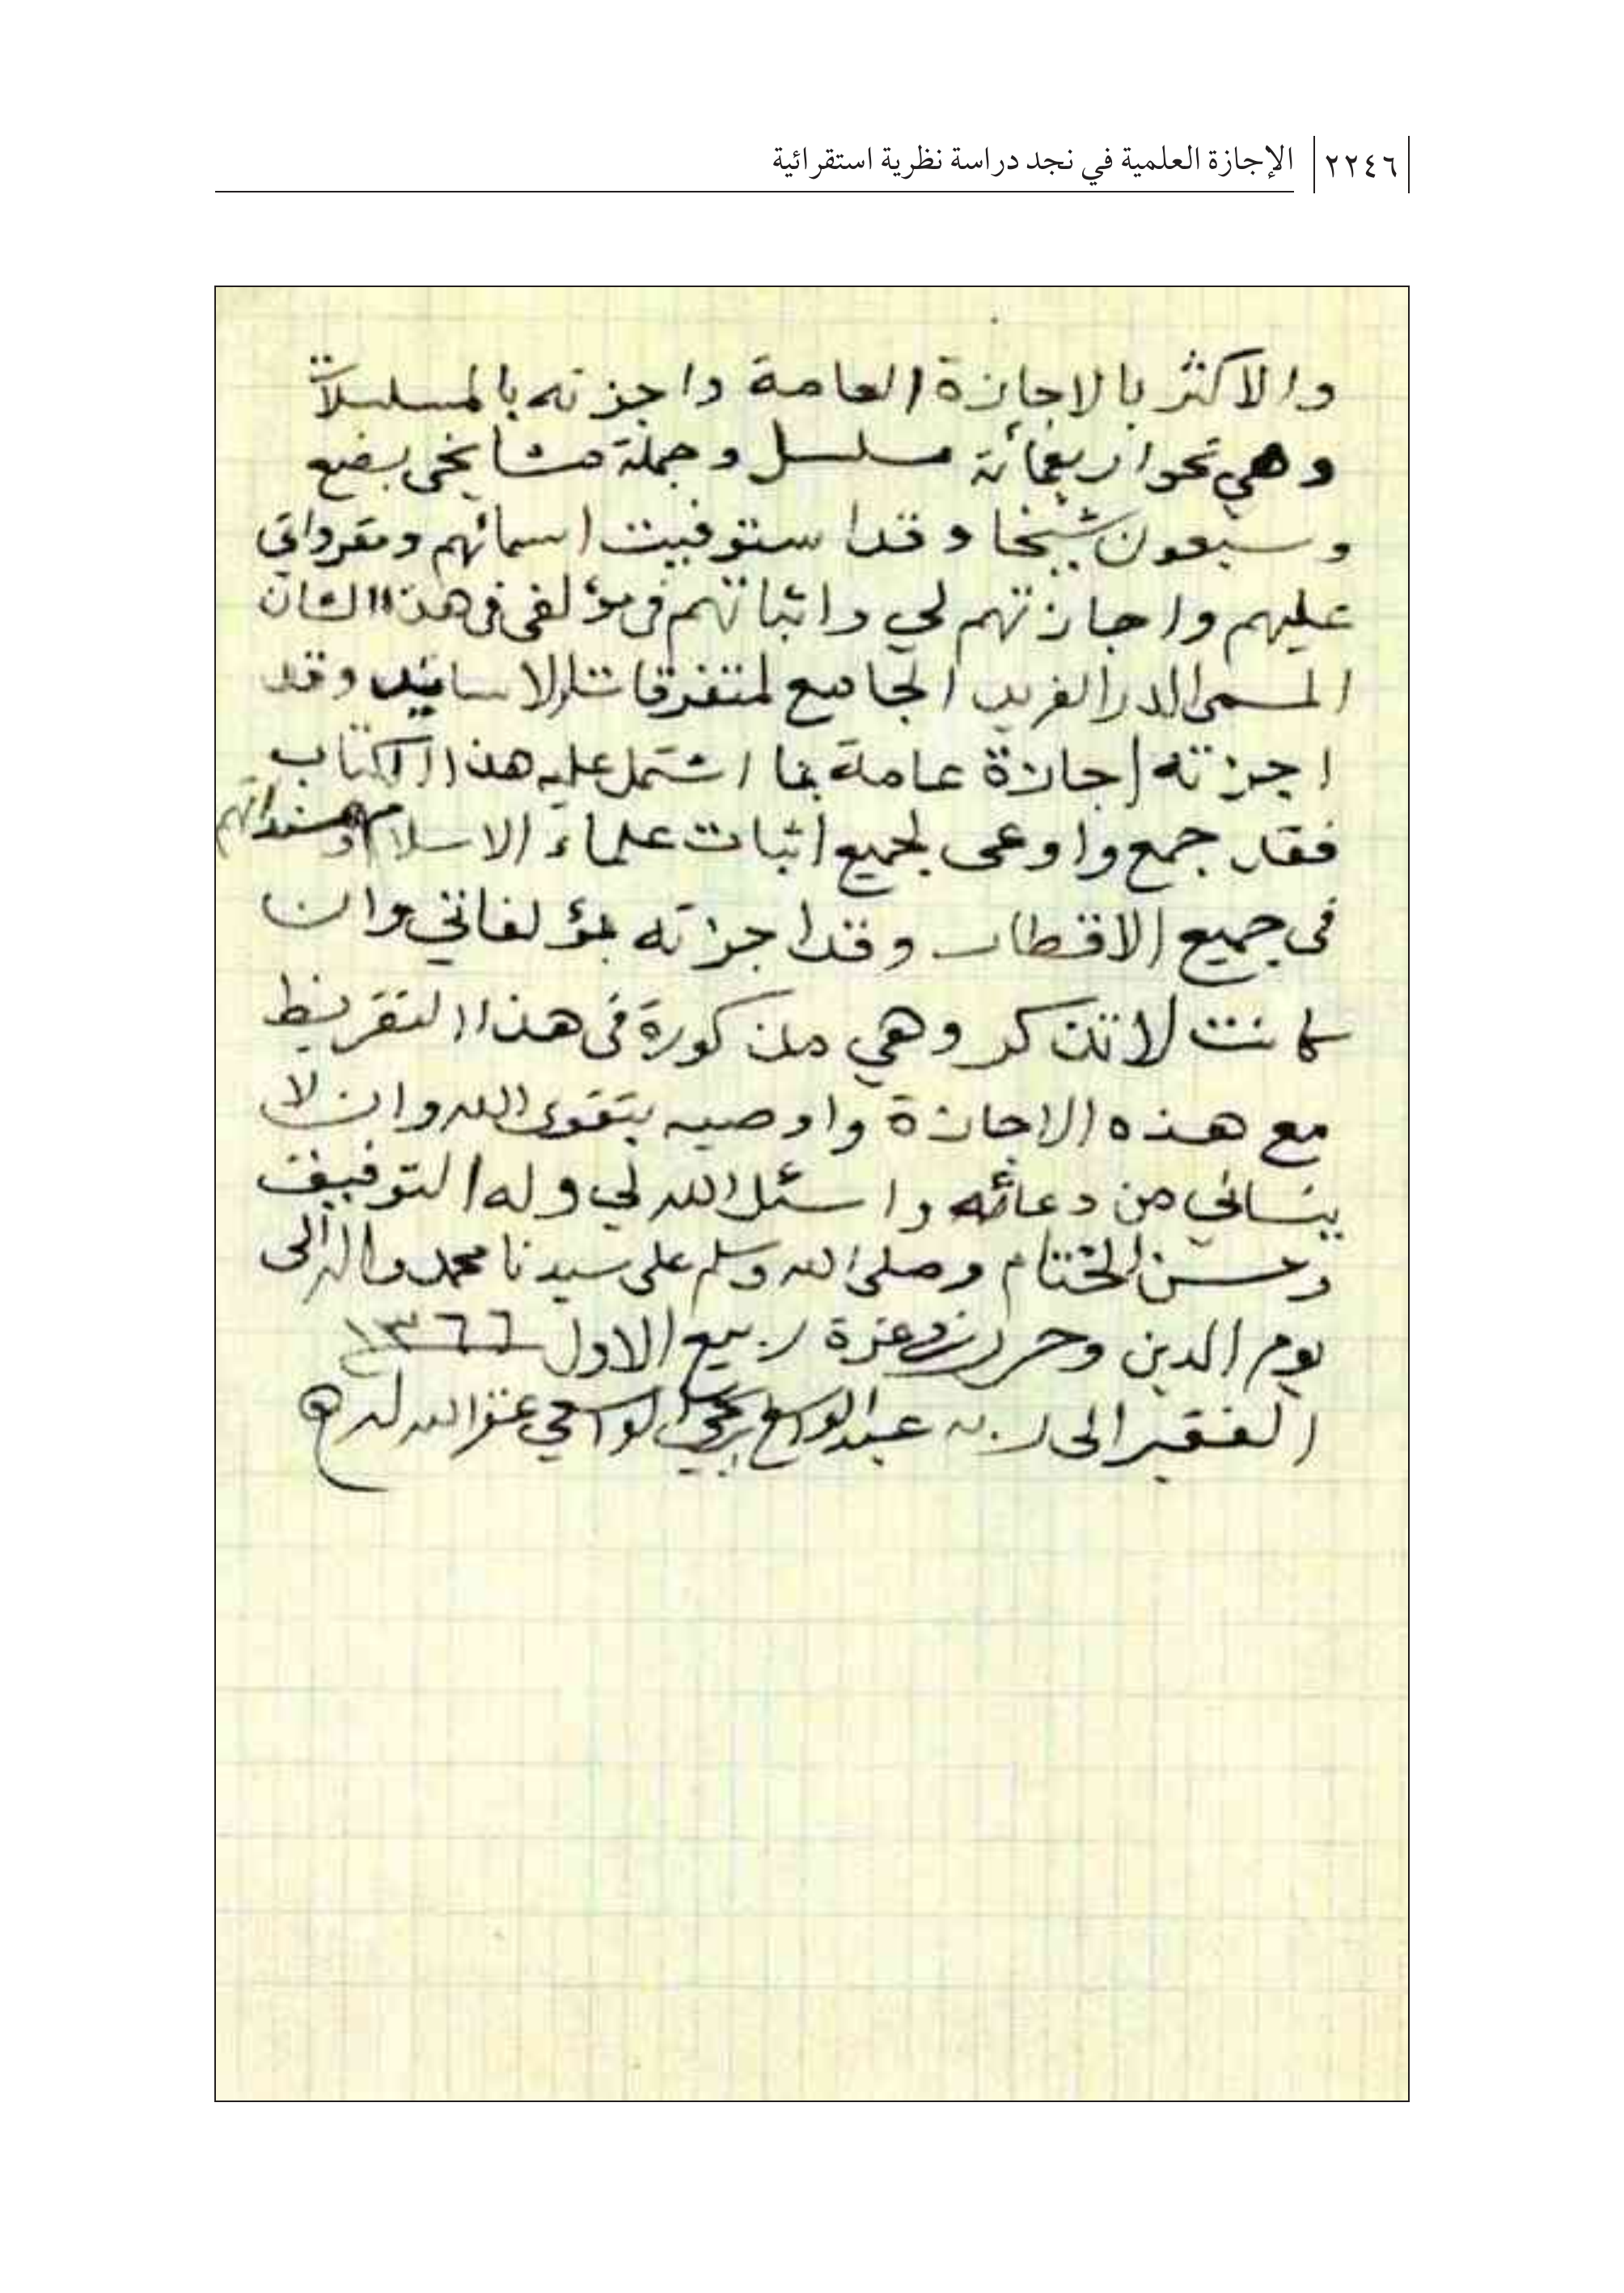 ٢٢٤٦ الإجازة العلمية في نجد دراسة نظرية استقرائية
والاكثر بالاجازة العامة واجزته بالمسلسلات
وهي نحو اربعمائة مسلسل وجملة مشايخى بضع
وسبعون شيخا وقد استوفيت اسمائهم ومقرواتي
عليهم واجازتهم لي واثباتهم في مؤلفى فى هذا الشان
المسمى الدر الفريد الجامع لمتفرقات الاسانيد وقد
اجزته اجازة عامة بما اشتمل عليه هذا الكتاب
فقد جمع واوعى لجميع اثبات علماء الاسلام ومسنداتهم
فى جميع الاقطار وقد اجزته بمؤلفاتي وان
كانت لا تذكر وهي مذكورة فى هذا التقريظ
مع هذه الاجازة واوصيه بتقوى الله وان لا
ينساني من دعائه واسئل الله لي وله التوفيق
وحسن الختام وصلى الله وسلم على سيدنا محمد واله الى
يوم الدين وحرر غرة ربيع الاول ١٣٦٦
الفقير الى ربه عبد الواسع بن يحيى الواسعي غفر الله له